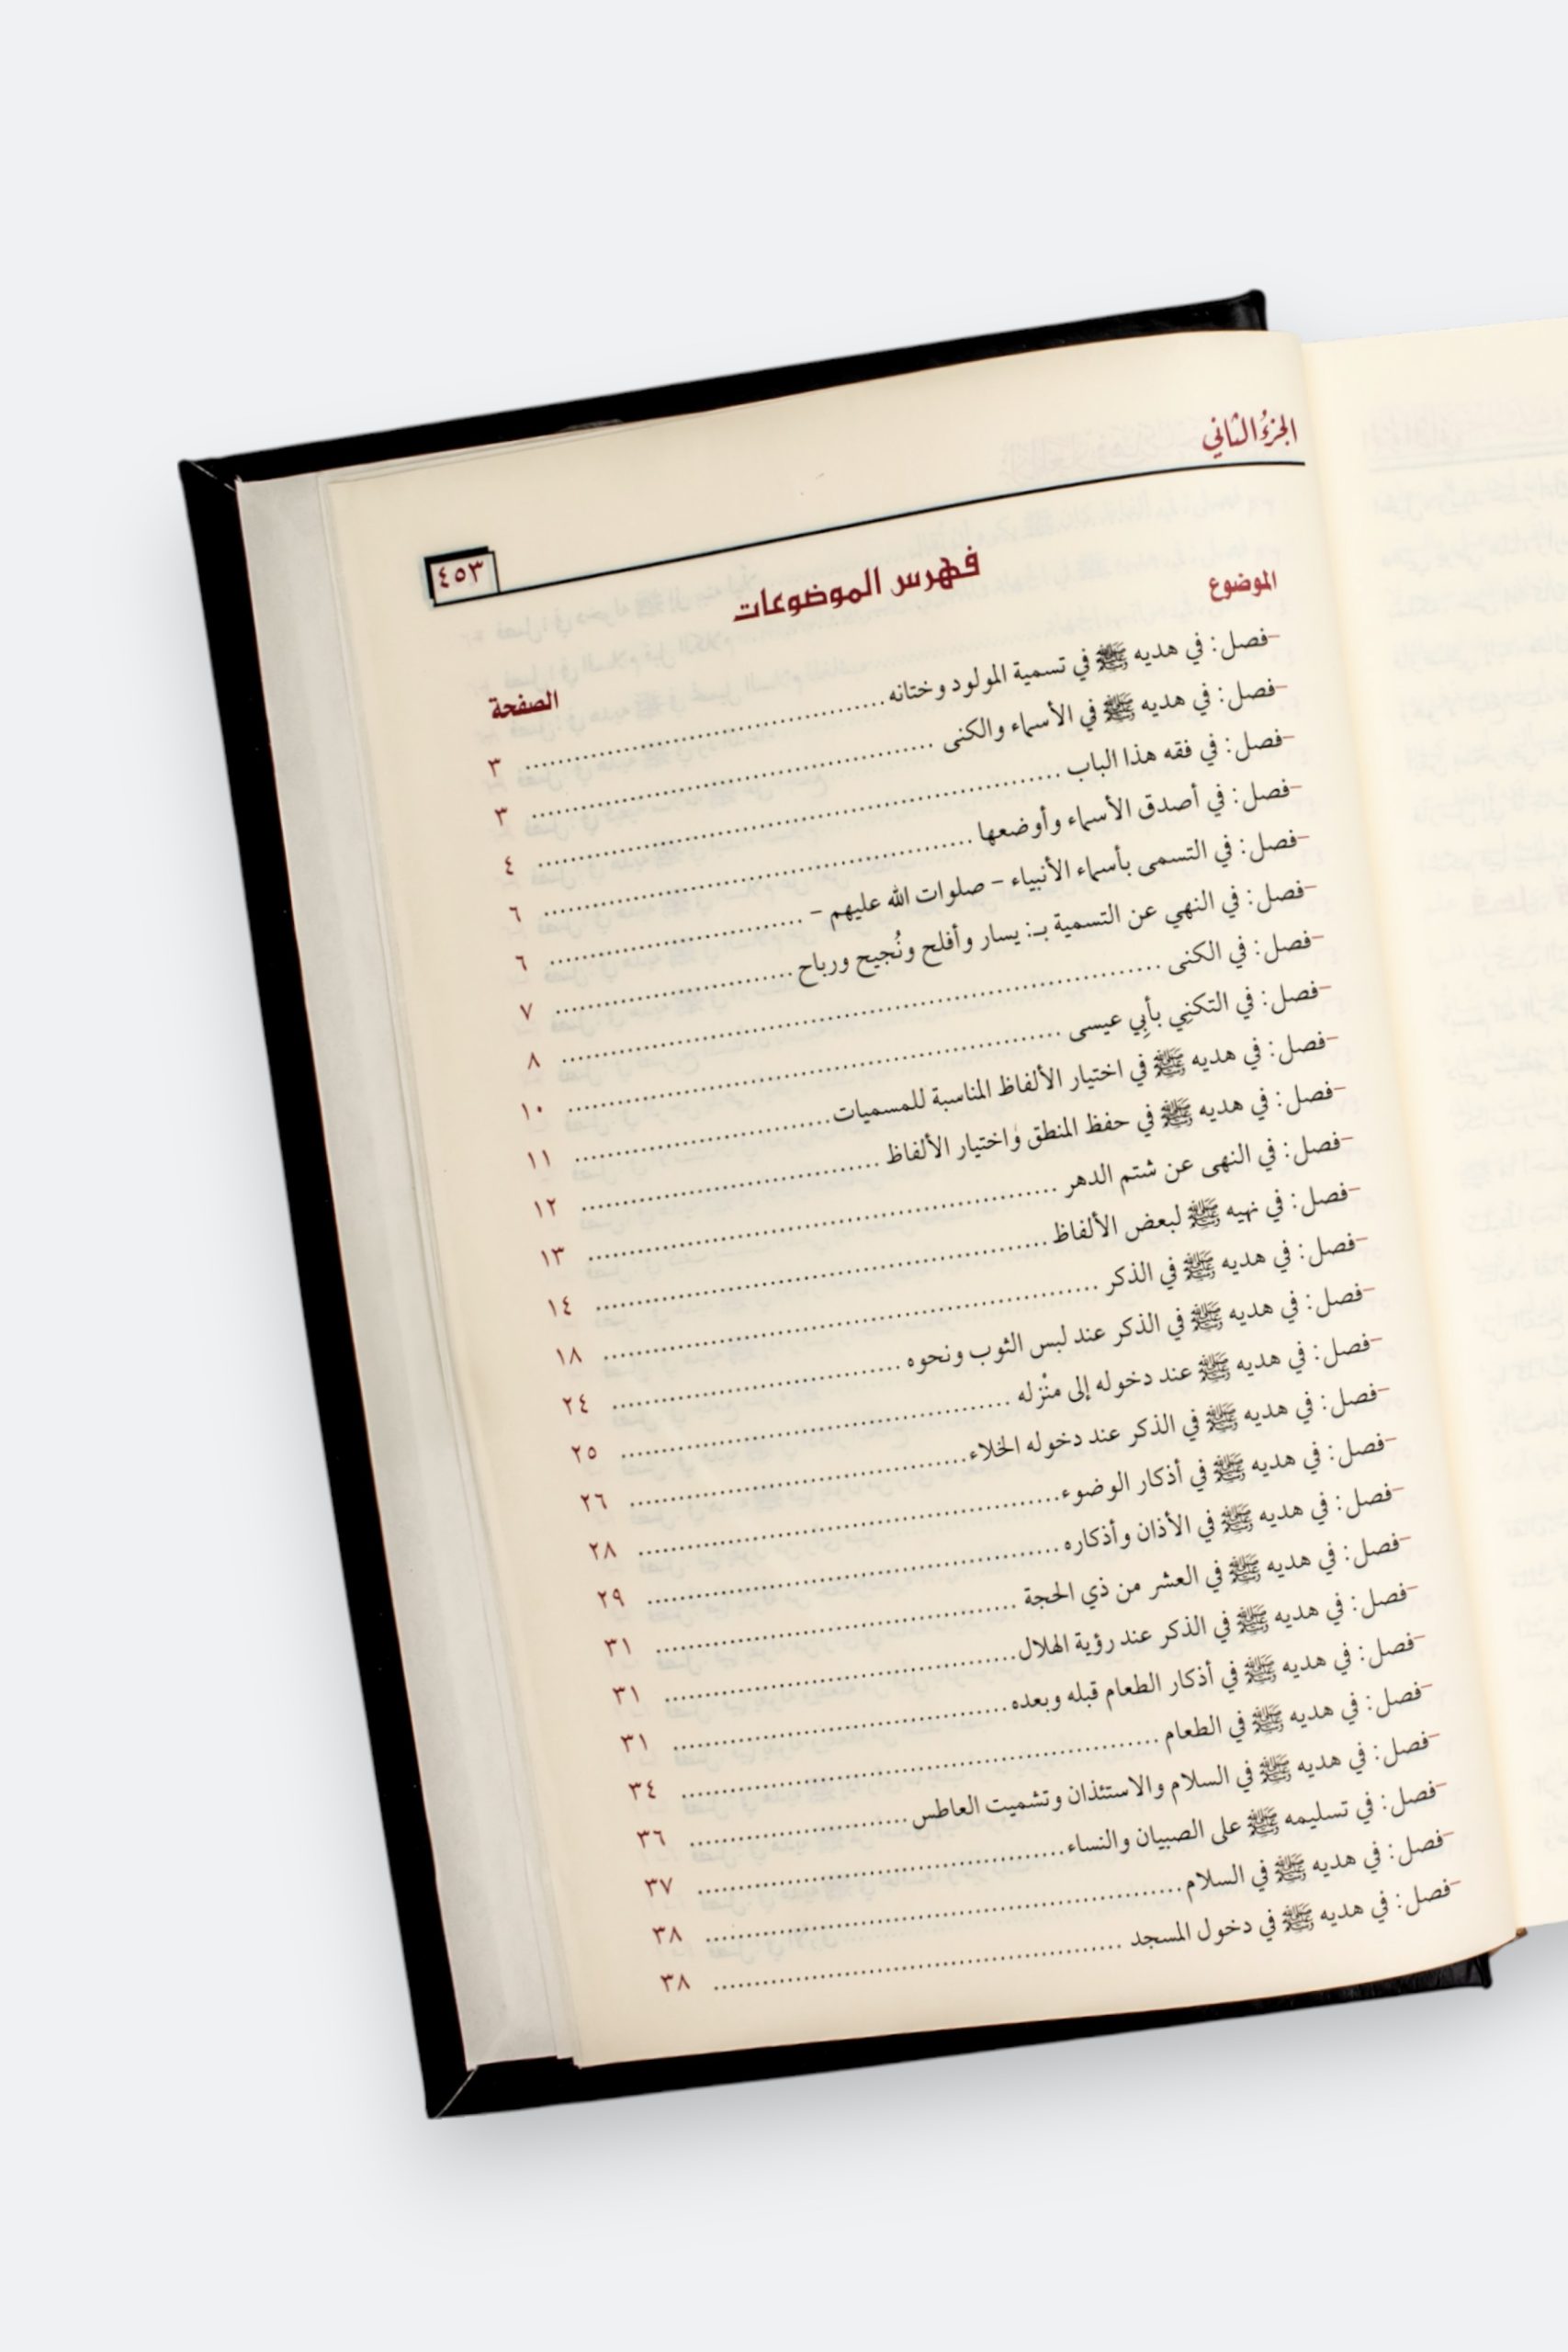 الجزء الثاني
٤٥٣
فهرس الموضوعات
الموضوع
الصفحة
-فصل: في هديه ﷺ في تسمية المولود وختانه ........ ٣
-فصل: في هديه ﷺ في الأسماء والكنى ........ ٣
-فصل: في فقه هذا الباب ........ ٤
-فصل: في أصدق الأسماء وأوضعها ........ ٦
-فصل: في التسمى بأسماء الأنبياء – صلوات الله عليهم – ........ ٦
-فصل: في النهي عن التسمية بـ: يسار وأفلح ونُجيح ورباح ........ ٧
-فصل: في الكنى ........ ٨
-فصل: في التكنِي بأبِي عيسى ........ ١٠
-فصل: في هديه ﷺ في اختيار الألفاظ المناسبة للمسميات ........ ١١
-فصل: في هديه ﷺ في حفظ المنطق واختيار الألفاظ ........ ١٢
-فصل: في النهى عن شتم الدهر ........ ١٣
-فصل: في نهيه ﷺ لبعض الألفاظ ........ ١٤
-فصل: في هديه ﷺ في الذكر ........ ١٨
-فصل: في هديه ﷺ في الذكر عند لبس الثوب ونحوه ........ ٢٤
-فصل: في هديه ﷺ عند دخوله إلى منْزله ........ ٢٥
-فصل: في هديه ﷺ في الذكر عند دخوله الخلاء ........ ٢٦
-فصل: في هديه ﷺ في أذكار الوضوء ........ ٢٨
-فصل: في هديه ﷺ في الأذان وأذكاره ........ ٢٩
-فصل: في هديه ﷺ في العشر من ذي الحجة ........ ٣١
-فصل: في هديه ﷺ في الذكر عند رؤية الهلال ........ ٣١
-فصل: في هديه ﷺ في أذكار الطعام قبله وبعده ........ ٣١
-فصل: في هديه ﷺ في الطعام ........ ٣٤
-فصل: في هديه ﷺ في السلام والاستئذان وتشميت العاطس ........ ٣٦
-فصل: في تسليمه ﷺ على الصبيان والنساء ........ ٣٧
-فصل: في هديه ﷺ في السلام ........ ٣٨
-فصل: في هديه ﷺ في دخول المسجد ........ ٣٨